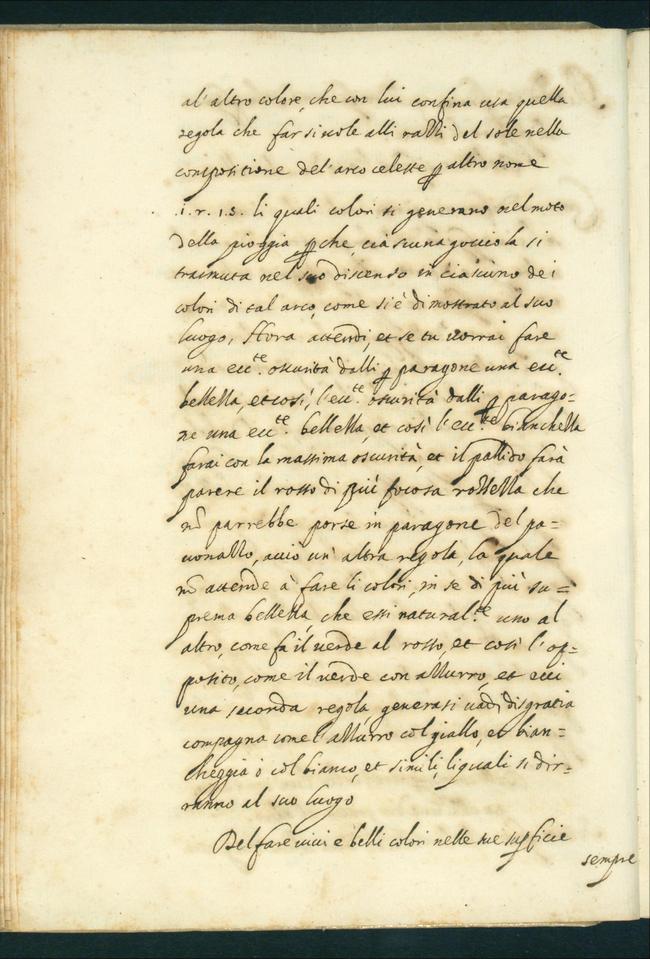 al'altro colore, che con lui confina usa quella
regola che far si uole alli razzi del sole nella
compositione del'arco celeste p altro nome
.i.r.i.s. li quali colori si generano nel moto
della pioggia, p che, ciascuna gocciola si
trasmuta nel suo discenso in ciascuno dei
colori di tal arco, come si è dimostrato al suo
luogo, Hora attendi, et se tu uorrai fare
una ecc.te oscurità dalli p paragone una ecc.te
bellezza, et così, l'ecc.te oscurità dalli p parago=
ne una ecc.te bellezza, et così l'ecc.te bianchezza
farai con la massima oscurità, et il pallido farà
parere il rosso di più focosa rossezza che
nō parrebbe porse in paragone del pa=
uonazzo, acciò un' altra regola, la quale
nō attende à fare li colori, in se di più su=
prema bellezza, che essi natural.te uno al
altro, come fa il uerde al rosso, et così l'op=
posito, come il uerde con azzurro, et ecci
una seconda regola generasi disgratia
compagna come l'azzurro col giallo, et bian=
cheggia ò col bianco, et simili, liquali si dir=
ranno al suo luogo
Del fare uiui e belli colori nelle sue supficie
sempre